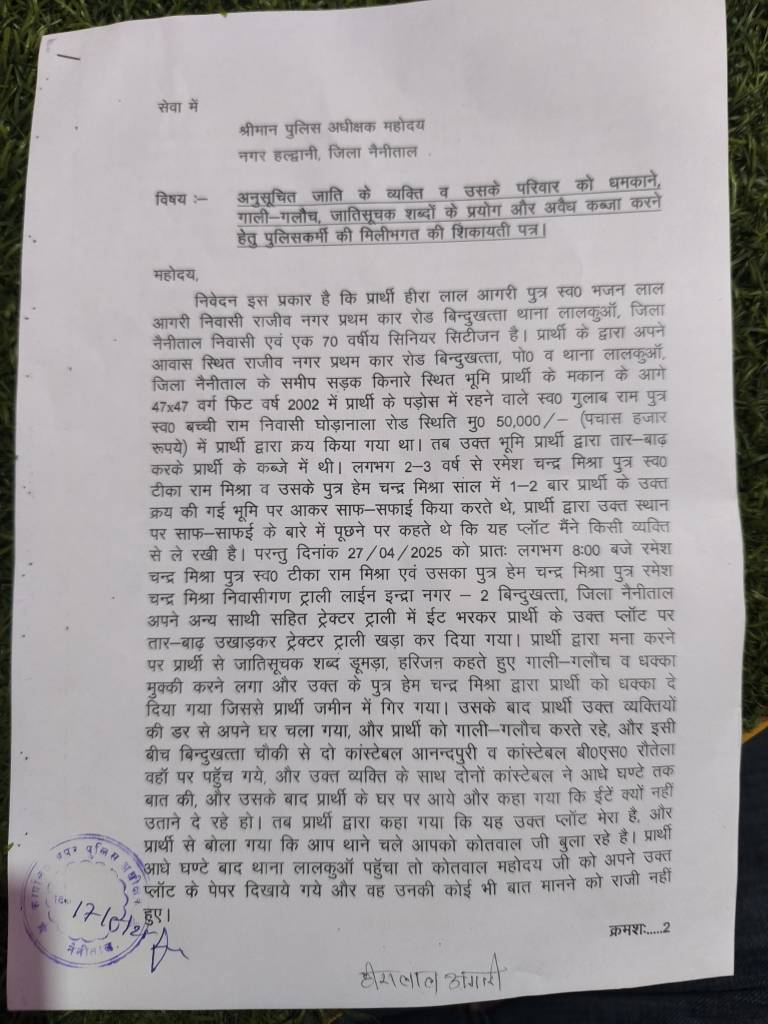 सेवा में
श्रीमान पुलिस अधीक्षक महोदय
नगर हल्द्वानी, जिला नैनीताल
विषय :– अनुसूचित जाति के व्यक्ति व उसके परिवार को धमकाने,
गाली–गलौच, जातिसूचक शब्दों के प्रयोग और अवैध कब्जा करने
हेतु पुलिसकर्मी की मिलीभगत की शिकायती पत्र।
महोदय,
निवेदन इस प्रकार है कि प्रार्थी हीरा लाल आगरी पुत्र स्व0 भजन लाल
आगरी निवासी राजीव नगर प्रथम कार रोड बिन्दुखत्ता थाना लालकुऑ, जिला
नैनीताल निवासी एवं एक 70 वर्षीय सिनियर सिटीजन है। प्रार्थी के द्वारा अपने
आवास स्थित राजीव नगर प्रथम कार रोड बिन्दुखत्ता, पो0 व थाना लालकुऑ,
जिला नैनीताल के समीप सड़क किनारे स्थित भूमि प्रार्थी के मकान के आगे
47x47 वर्ग फिट वर्ष 2002 में प्रार्थी के पड़ोस में रहने वाले स्व0 गुलाब राम पुत्र
स्व0 बच्ची राम निवासी घोड़ानाला रोड स्थिति मु0 50,000/– (पचास हजार
रूपये) में प्रार्थी द्वारा क्रय किया गया था। तब उक्त भूमि प्रार्थी द्वारा तार–बाढ़
करके प्रार्थी के कब्जे में थी। लगभग 2–3 वर्ष से रमेश चन्द्र मिश्रा पुत्र स्व0
टीका राम मिश्रा व उसके पुत्र हेम चन्द्र मिश्रा साल में 1–2 बार प्रार्थी के उक्त
क्रय की गई भूमि पर आकर साफ–सफाई किया करते थे, प्रार्थी द्वारा उक्त स्थान
पर साफ–साफई के बारे में पूछने पर कहते थे कि यह प्लॉट मैंने किसी व्यक्ति
से ले रखी है। परन्तु दिनांक 27/04/2025 को प्रातः लगभग 8:00 बजे रमेश
चन्द्र मिश्रा पुत्र स्व0 टीका राम मिश्रा एवं उसका पुत्र हेम चन्द्र मिश्रा पुत्र रमेश
चन्द्र मिश्रा निवासीगण ट्राली लाईन इन्द्रा नगर – 2 बिन्दुखत्ता, जिला नैनीताल
अपने अन्य साथी सहित ट्रेक्टर ट्राली में ईट भरकर प्रार्थी के उक्त प्लॉट पर
तार–बाढ़ उखाड़कर ट्रेक्टर ट्राली खड़ा कर दिया गया। प्रार्थी द्वारा मना करने
पर प्रार्थी से जातिसूचक शब्द डूमड़ा, हरिजन कहते हुए गाली–गलौच व धक्का
मुक्की करने लगा और उक्त के पुत्र हेम चन्द्र मिश्रा द्वारा प्रार्थी को धक्का दे
दिया गया जिससे प्रार्थी जमीन में गिर गया। उसके बाद प्रार्थी उक्त व्यक्तियों
की डर से अपने घर चला गया, और प्रार्थी को गाली–गलौच करते रहे, और इसी
बीच बिन्दुखत्ता चौकी से दो कांस्टेबल आनन्दपुरी व कांस्टेबल बी0एस0 रौतेला
वहॉ पर पहुँच गये, और उक्त व्यक्ति के साथ दोनों कांस्टेबल ने आधे घण्टे तक
बात की, और उसके बाद प्रार्थी के घर पर आये और कहा गया कि ईटें क्यों नहीं
उताने दे रहे हो। तब प्रार्थी द्वारा कहा गया कि यह उक्त प्लॉट मेरा है, और
प्रार्थी से बोला गया कि आप थाने चले आपको कोतवाल जी बुला रहे है। प्रार्थी
आधे घण्टे बाद थाना लालकुऑ पहुँचा तो कोतवाल महोदय जी को अपने उक्त
प्लॉट के पेपर दिखाये गये और वह उनकी कोई भी बात मानने को राजी नहीं
हुए।
क्रमशः.....2
नैनीताल
हीरालाल आगरी